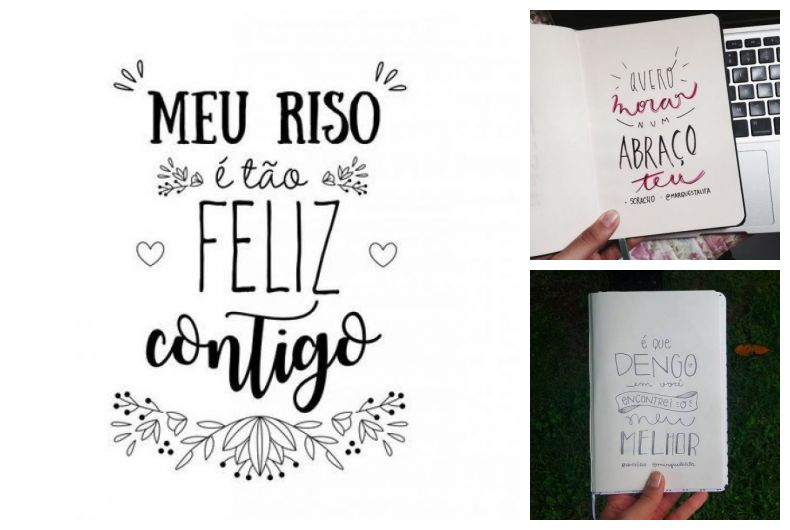 MEU RISO
é tão
FELIZ
contigo
QUERO
morar
NUM
ABRAÇO
teu
- SORACHO - @MARQUESTALITA
é que
DENGO
em você
encontrei o
meu
MELHOR